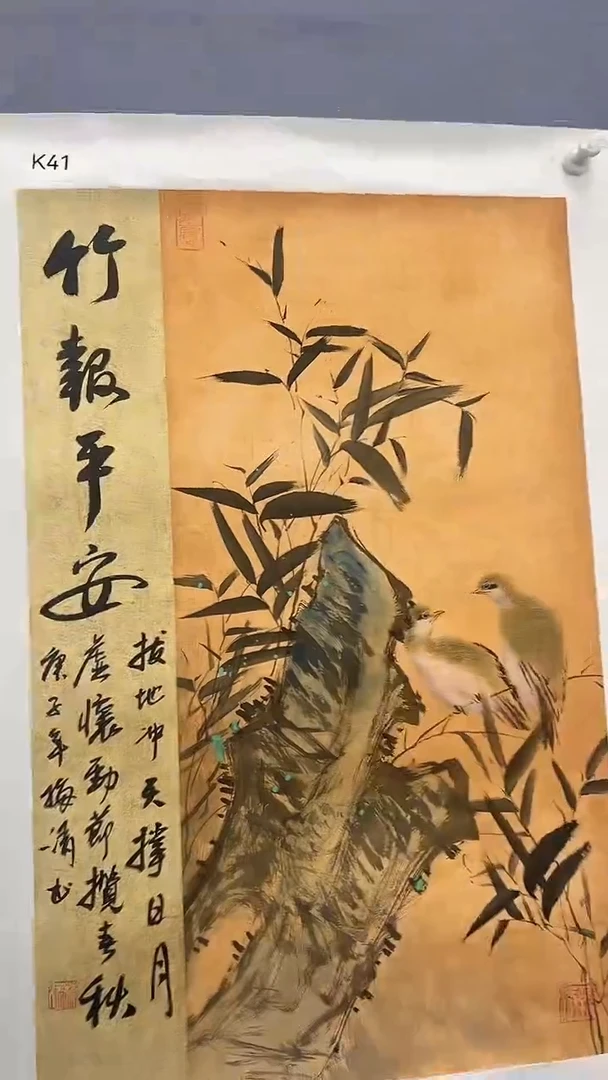 K41
竹報平安
拔地冲天撑日月
虚懷勁節攬春秋
庚子年梅清书